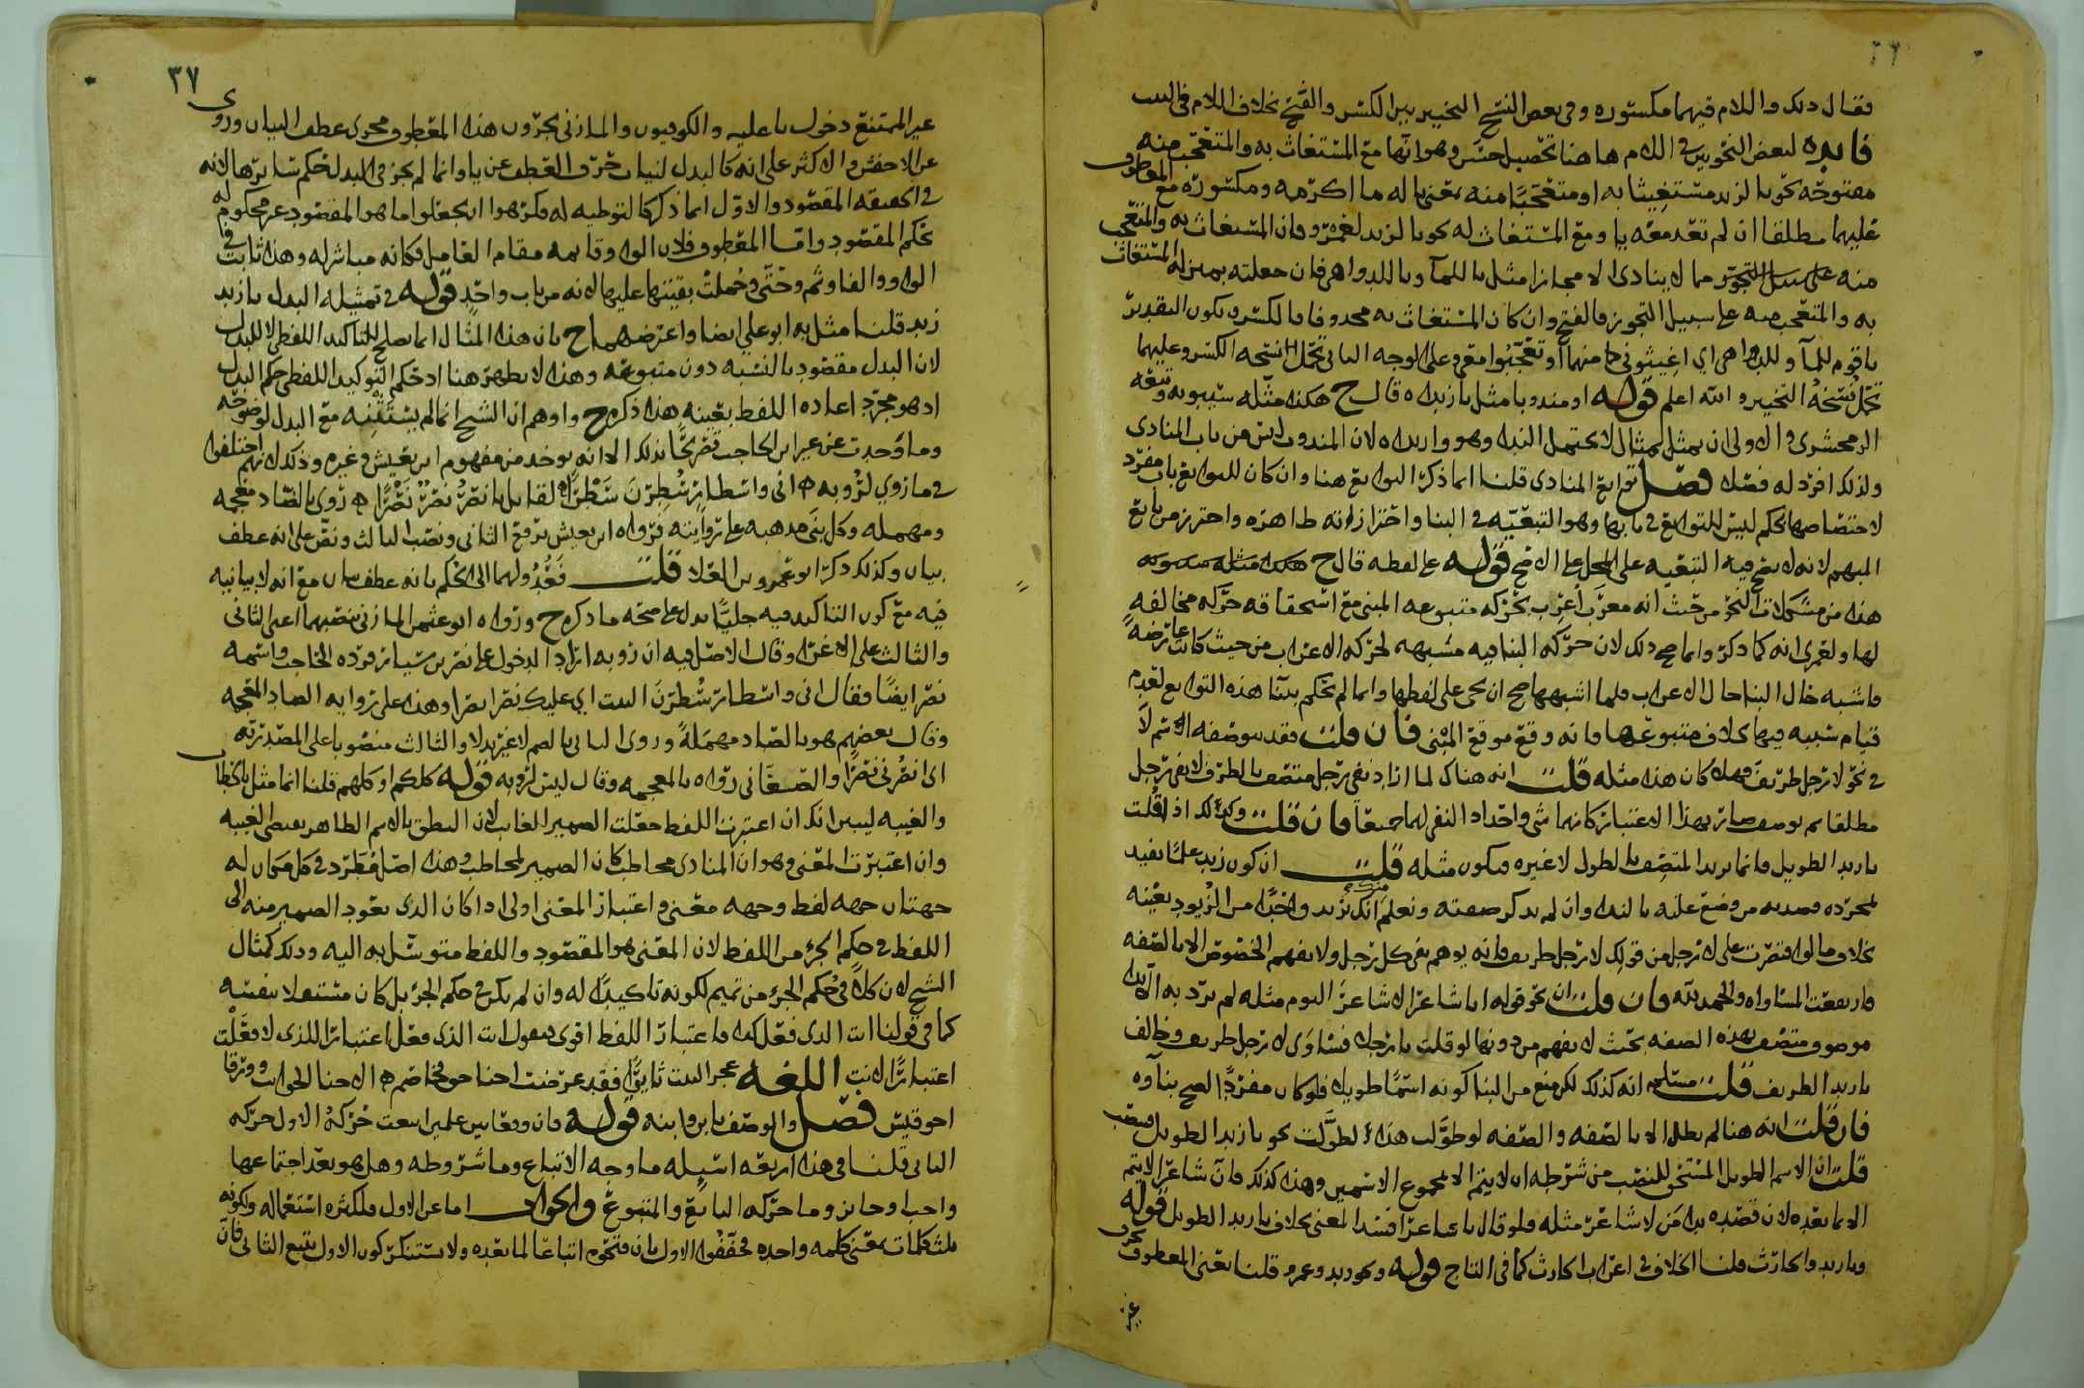 فقال ذلك واللام فيهما مكسورة وفي بعض النسخ التخيير بين الكسر والفتح بخلاف اللام في
فايده لبعض النحويين في اللام هاهنا تحصيل حسن وهو انها مع المستغاث به والمتعجب منه
مفتوحة نحو يا لزيد مستغيثا به او متعجبا منه بمعنى يا له ما اكرمه ومكسورة مع المعطوف
عليهما مطلقا ان لم تعد معه يا ومع المستغاث له نحو يا لزيد لعمرو وان المستغاث به والمتعجب
منه على سبيل التجوز مما لا ينادى الا مجازا مثل يا للمآ ويا للدواهي فان جعلته بمنزلة المستغاث
به والمتعجب منه على سبيل التجوز فالفتح وان كان المستغاث به محذوفا فالكسر ويكون التقدير
يا قوم للمآ وللدواهي اي اغيثوني منهما او تعجبوا معي وعلى الوجه الثاني تحمل نسخة الكسر وعليهما
تحمل نسخة التخيير والله اعلم قوله او مندوبا مثل يا زيداه قال ح هكذا مثله سيبويه وتبعه
الزمخشري والاولى ان يمثل بمثال لا يحتمل الندا وهو وا زيداه لان المندوب ليس من باب المنادى
ولذلك افرد له فصلا فصل توابع المنادى قلنا انما ذكر التوابع هنا وان كان للتوابع باب مفرد
لاختصاصها بحكم ليس للتوابع في بابها وهو التبعية في البنا واحترازاته ظاهرة واحترز من تابع
المبهم لانه لا يصح فيه التبعية على المحل على الاصح قوله على لفظه قال ح
هذه من مشكلات النحو من حيث انه معرب اعرب بحركة متبوعه المبني مع استحقاقه حركة مخالفة
لها ولعمري انه كما ذكر وانما صح ذلك لان حركة البنا فيه مشبهة لحركة الاعراب من حيث كانت عارضة
فاشبه حال البنا حال الاعراب فلما اشبهها صح ان يجري على لفظها وانما لم يحكم ببنا هذه التوابع لعدم
قيام شبيه فيها بخلاف متبوعها فانه وقع موقع المبني فان قلت فقد بنو صفة اسم لا
في نحو لا رجل ظريف فهلا كان هذا مثله قلت انه هناك لما اراد نفي رجل متصف بالظرف لا نفي رجل
مطلقا ثم يوصف صار بهذا الاعتبار كانهما شي واحد اذ النفي لهما جميعا فان قلت وكذلك اذا قلت
يا زيد الطويل فانما تريد المتصف بالطول لا غيره فيكون مثله قلت ان كون زيد علما يفيد
بمجرده قصد به من وضع عليه بالندا وان لم يذكر صفته وتعلم انك تريد واحدا من الزيود بعينه
بخلاف ما لو اقتصرت على لا رجل من قولك لا رجل ظريف فانه يوهم نفي كل رجل ولا يفهم الخصوص الا بالصفة
فارتفعت المساواة والحمد لله فان قلت ان نحو قوله ايا شاعرا لا شاعر اليوم مثله لم يرد به الا ندا
موصوف متصف بهذه الصفة بحيث لا يفهم من دونها لو قلت يا رجلا فساوى لا رجل ظريف وخالف
يا زيد الظريف قلت مسلم انه كذلك لكن منع من البنا كونه اسما طويلا فلو كان مفردا لصح بناوه
فان قلت انه هنا لم يطل الا بالصفة والصفة لو طولت هذا لطولت نحو يا زيد الطويل
قلت ان الاسم الطويل المستحق للنصب من شرطه ان لا يتم الا بمجموع الاسمين وهذا كذلك فان شاعرا لا يتم
الا بما بعده لان قصده ندا من لا شاعر مثله فلو قال يا شاعرا فسد المعنى بخلاف يا زيد الطويل قوله
ويا زيد والحارث قلنا الخلاف في اعراب الحارث كما في التاج قوله ونحو زيد وعمرو قلنا يعني المعطوف بحرف
غير
٣٧
غير الممتنع دخول يا عليه والكوفيون والمازني يجرون هذا المعطوف مجرى عطف البيان وروي
عن الاخفش والاكثر على انه كالبدل لنيابة حرف العطف عن يا وانما لم يجز في البدل حكم سايرها لانه
في الحقيقة المقصود والاول انما ذكر كالتوطية له فكرهوا ان يجعلوا ما هو المقصود غير محكوم له
بحكم المقصود واما المعطوف فلان الواو قايمة مقام العامل فكانه مباشر له وهذا ثابت في
الواو والفا وثم وحتى وحملت بقيتها عليها لانه من باب واحد قوله في تمثيله البدل يا زيد
زيد قلنا مثل به ابو علي ايضا واعترضهما ح بان هذا المثال انما يصلح للتاكيد اللفظي لا للبدل
لان البدل مقصود بالنسبة دون متبوعه وهذا لا يظهر هنا اذ حكم التوكيد اللفظي حكم البدل
اذ هو مجرد اعادة اللفظ بعينه هذا ذكره ح واوهم ان الشيخ انما لم يستثنه مع البدل لوضوحه
وما وجدت عن غير ابن الحاجب تصريحا بذلك الا انه يوخذ من مفهوم ابن يعيش وغيره وذلك انهم اختلفوا
في ما روي لرؤبة اني واسطار سطرن سطرا لقايل يا نصر نصر نصرا روي بالضاد معجمة
ومهملة وكل بنى مذهبه على روايته فرواه ابن يعيش برفع الثاني ونصب الثالث ونص على انه عطف
بيان وكذلك ذكر ابو عمرو بن العلا قلت فعدولهما الى الحكم بانه عطف بيان مع انه لا بيانية
فيه مع كون التاكيد فيه جليا يدل على صحة ما ذكره ح ورواه ابو عثمان المازني بنصبهما اعني الثاني
والثالث على الاغرا وقال الاصل فيه ان رؤبة اراد الدخول على نصر بن سيار فرده الحاجب واسمه
نصر ايضا فقال اني واسطار سطرن البيت اي عليك نصرا نصرا وهذا على رواية الصاد المعجمة
وقال بعضهم هو بالصاد مهملة وروى الثاني بالضم لا غير بدلا والثالث منصوبا على المصدرية
اي انصرني نصرا والصغاني رواه بالمعجمة وقال ليس لرؤبة قوله كلكم او كلهم قلنا انما مثل بالخطاب
والغيبة ليبين انك ان اعتبرت اللفظ جعلت الضمير للغايب لان النطق بالاسم الظاهر يقتضي الغيبة
وان اعتبرت المعنى وهو ان المنادى مخاطب كان الضمير لمخاطب وهذا اصل مطرد في كل مكان له
جهتان جهة لفظ وجهة معنى واعتبار المعنى اولى اذا كان الذي يعود الضمير منه الى
اللفظ في حكم الجزء من اللفظ لان المعنى هو المقصود واللفظ متوسل به اليه وذلك كمثال
الشيخ لان كلا في حكم الجزء من تميم لكونه تاكيدا له وان لم يكن في حكم الجزء بل كان مستقلا بنفسه
كما في قولنا انت الذي فعل كذا فاعتبار اللفظ اقوى فنقول انت الذي فعل اعتبارا للذي لا فعلت
اعتبارا لانت اللغة عجز البيت ثايرا فقد عرضت احنا حق فخاصم الاحنا الجوانب وورقا
اخو قيس فصل والوصف بابن وابنة قوله فان وقعا بين علمين اتبعت حركة الاول حركة
الثاني قلنا في هذا اربعة اسيلة ما وجه الاتباع وما شروطه وهل هو بعد اجتماعها
واجب او جايز وما حركة التابع والمتبوع والجواب اما عن الاول فلكثرة استعماله ولكونه
ثلث كلمات بمعنى كلمة واحدة فخففوا الاول بان فتحوه اتباعا لما بعده ولا يستنكر كون الاول يتبع الثاني فان